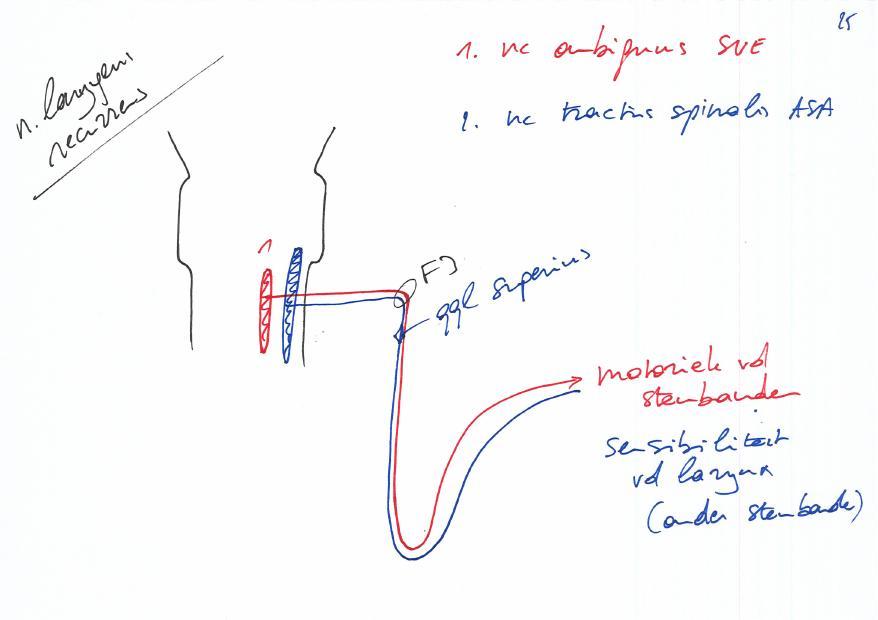 25
n. laryngeus
recurrens
1. nc ambiguus SVE
2. nc tractus spinalis ASA
1
FJ
ggl superius
motoriek vd
stembanden
sensibiliteit
vd larynx
(onder stembanden)